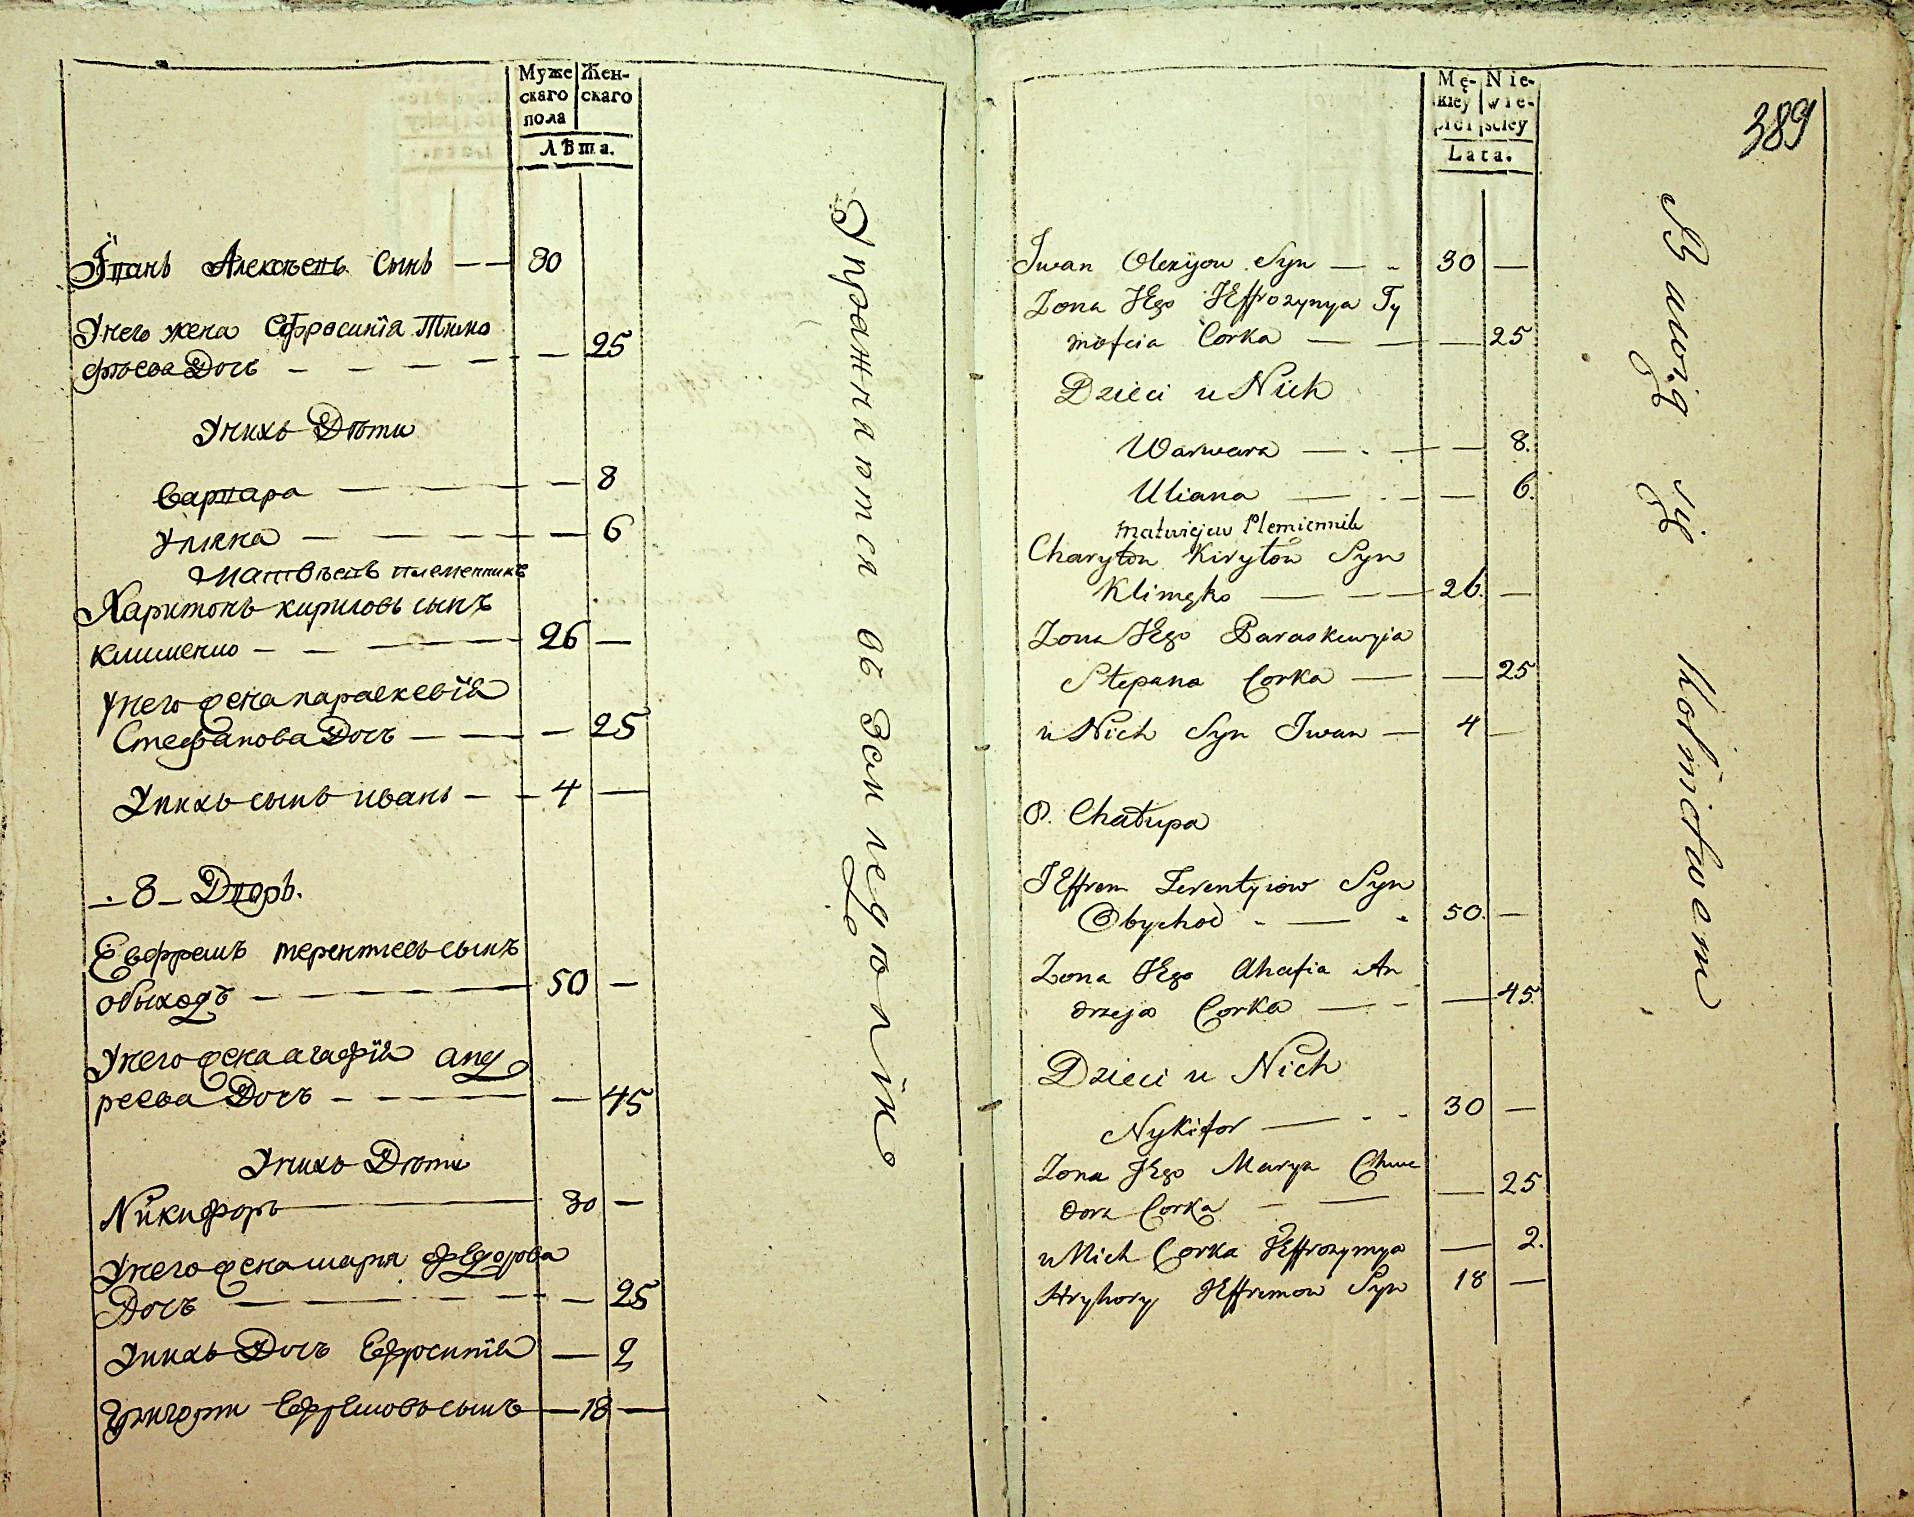 Муже
скаго
пола
Жен-
скаго
Лѣта.
Іванъ Алексѣевъ Сынъ — — 30
Унего жена Ефросинїя Тимо
фѣева Дочь — — — — — 25
Унихъ Дѣти
Варвара — — — — 8
Уляна — — — — — 6
Матвѣевъ племенникъ
Харитонъ кириловъ сынъ
клименко — — — — 26 —
Унего жена параскевїя
Стефанова Дочь — — — — 25
Унихъ сынъ иванъ — — 4 —
— 8 — Дворъ.
Евфремъ терентиевъ сынъ
обыходъ — — — — 50 —
Унего жена агафїя анд
реева Дочъ — — — — — 45
Унихъ Дѣти
Никифоръ — 30 —
Унего жена марія федорова
Дочъ — — — — — 25
Унихъ Дочъ Ефросинїя — 2
Григорти Ефремовъ сынъ — 18 —
Упражняются въ Земледюлїи
Mę-
kiey
płci
Nie-
wie-
sciey
Lata.
389
Iwan Olexijow Syn — - 30 —
Zona JEgo JEffrozynya Ty
mofeia Corka — — — 25
Dzieci u Nich
Warwara — . — — 8.
Uliana — - - — 6.
Matwiejew Plemiennik
Charyton Kirytow Syn
Klimęko — — — 26. —
Zona JEgo Paraskewyia
Stepana Corka — — 25
u Nich Syn Iwan — 4 —
8. Chałupa
JEffrem Terentyiow Syn
Obychod - — - 50. —
Zona JEgo Ahafia An
drzeja Corka — - — 45.
Dzieci u Nich
Nykifor — - - 30 —
Zona JEgo Marya Chwe
dora Corka - — — 25
u Nich Corka JEffrozymya — 2.
Hryhory JEffremow Syn 18 —
Bawią się Rolnictwem